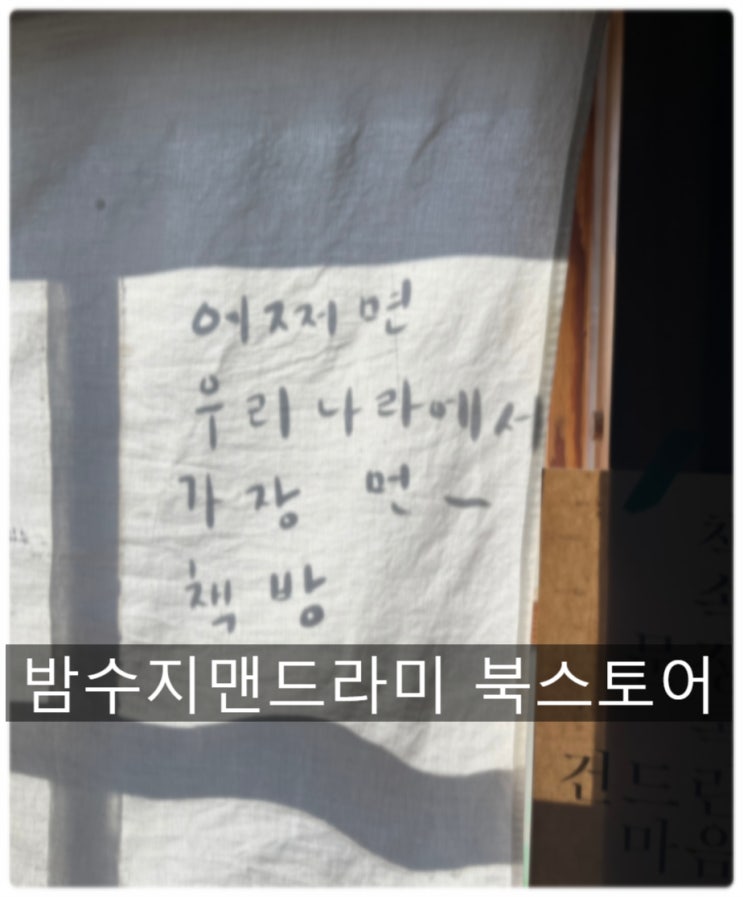 어쩌면
우리나라에서
가장 먼~
책방
밤수지맨드라미 북스토어
건드린
마음